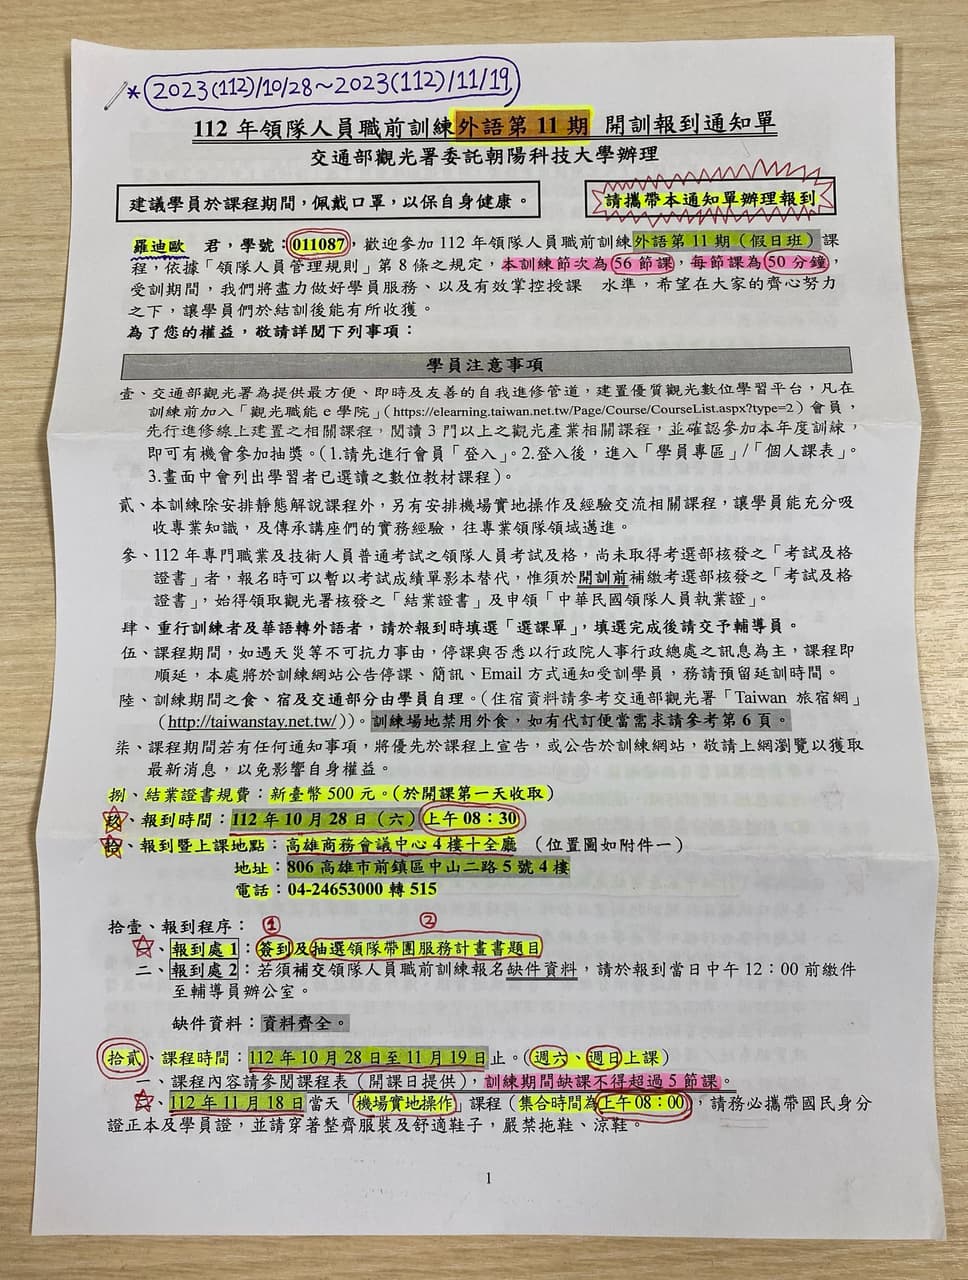 *2023(112)/10/28~2023(112)/11/19
112 年領隊人員職前訓練外語第 11 期 開訓報到通知單
交通部觀光署委託朝陽科技大學辦理
建議學員於課程期間，佩戴口罩，以保自身健康。
請攜帶本通知單辦理報到
羅迪歐 君，學號：011087，歡迎參加 112 年領隊人員職前訓練外語第 11 期（假日班）課
程，依據「領隊人員管理規則」第 8 條之規定，本訓練節次為 56 節課，每節課為 50 分鐘，
受訓期間，我們將盡力做好學員服務、以及有效掌控授課 水準，希望在大家的齊心努力
之下，讓學員們於結訓後能有所收獲。
為了您的權益，敬請詳閱下列事項：
學員注意事項
壹、交通部觀光署為提供最方便、即時及友善的自我進修管道，建置優質觀光數位學習平台，凡在
訓練前加入「觀光職能 e 學院」（https://elearning.taiwan.net.tw/Page/Course/CourseList.aspx?type=2）會員，
先行進修線上建置之相關課程，閱讀 3 門以上之觀光產業相關課程，並確認參加本年度訓練，
即可有機會參加抽獎。（1.請先進行會員「登入」。2.登入後，進入「學員專區」/「個人課表」。
3.畫面中會列出學習者已選讀之數位教材課程）。
貳、本訓練除安排靜態解說課程外，另有安排機場實地操作及經驗交流相關課程，讓學員能充分吸
收專業知識，及傳承講座們的實務經驗，往專業領隊領域邁進。
參、112 年專門職業及技術人員普通考試之領隊人員考試及格，尚未取得考選部核發之「考試及格
證書」者，報名時可以暫以考試成績單影本替代，惟須於開訓前補繳考選部核發之「考試及格
證書」，始得領取觀光署核發之「結業證書」及申領「中華民國領隊人員執業證」。
肆、重行訓練者及華語轉外語者，請於報到時填選「選課單」，填選完成後請交予輔導員。
伍、課程期間，如遇天災等不可抗力事由，停課與否悉以行政院人事行政總處之訊息為主，課程即
順延，本處將於訓練網站公告停課、簡訊、Email 方式通知受訓學員，務請預留延訓時間。
陸、訓練期間之食、宿及交通部分由學員自理。（住宿資料請參考交通部觀光署「Taiwan 旅宿網」
（http://taiwanstay.net.tw/））。訓練場地禁用外食，如有代訂便當需求請參考第 6 頁。
柒、課程期間若有任何通知事項，將優先於課程上宣告，或公告於訓練網站，敬請上網瀏覽以獲取
最新消息，以免影響自身權益。
捌、結業證書規費：新臺幣 500 元。（於開課第一天收取）
玖、報到時間：112 年 10 月 28 日（六）上午 08：30
拾、報到暨上課地點：高雄商務會議中心 4 樓十全廳 （位置圖如附件一）
地址：806 高雄市前鎮區中山二路 5 號 4 樓
電話：04-24653000 轉 515
拾壹、報到程序： ① ②
一、報到處 1：簽到及抽選領隊帶團服務計畫書題目
二、報到處 2：若須補交領隊人員職前訓練報名缺件資料，請於報到當日中午 12：00 前繳件
至輔導員辦公室。
缺件資料：資料齊全。
拾貳、課程時間：112 年 10 月 28 日至 11 月 19 日止。（週六、週日上課）
一、課程內容請參閱課程表（開課日提供），訓練期間缺課不得超過 5 節課。
二、112 年 11 月 18 日當天「機場實地操作」課程（集合時間為上午 08：00），請務必攜帶國民身分
證正本及學員證，並請穿著整齊服裝及舒適鞋子，嚴禁拖鞋、涼鞋。
1